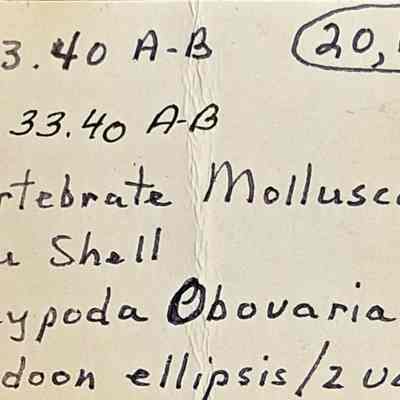 3.40 A-B 20,
33.40 A-B
rtebrate Mollusc
u Shell
ypoda Obovaria
doon ellipsis/2 va